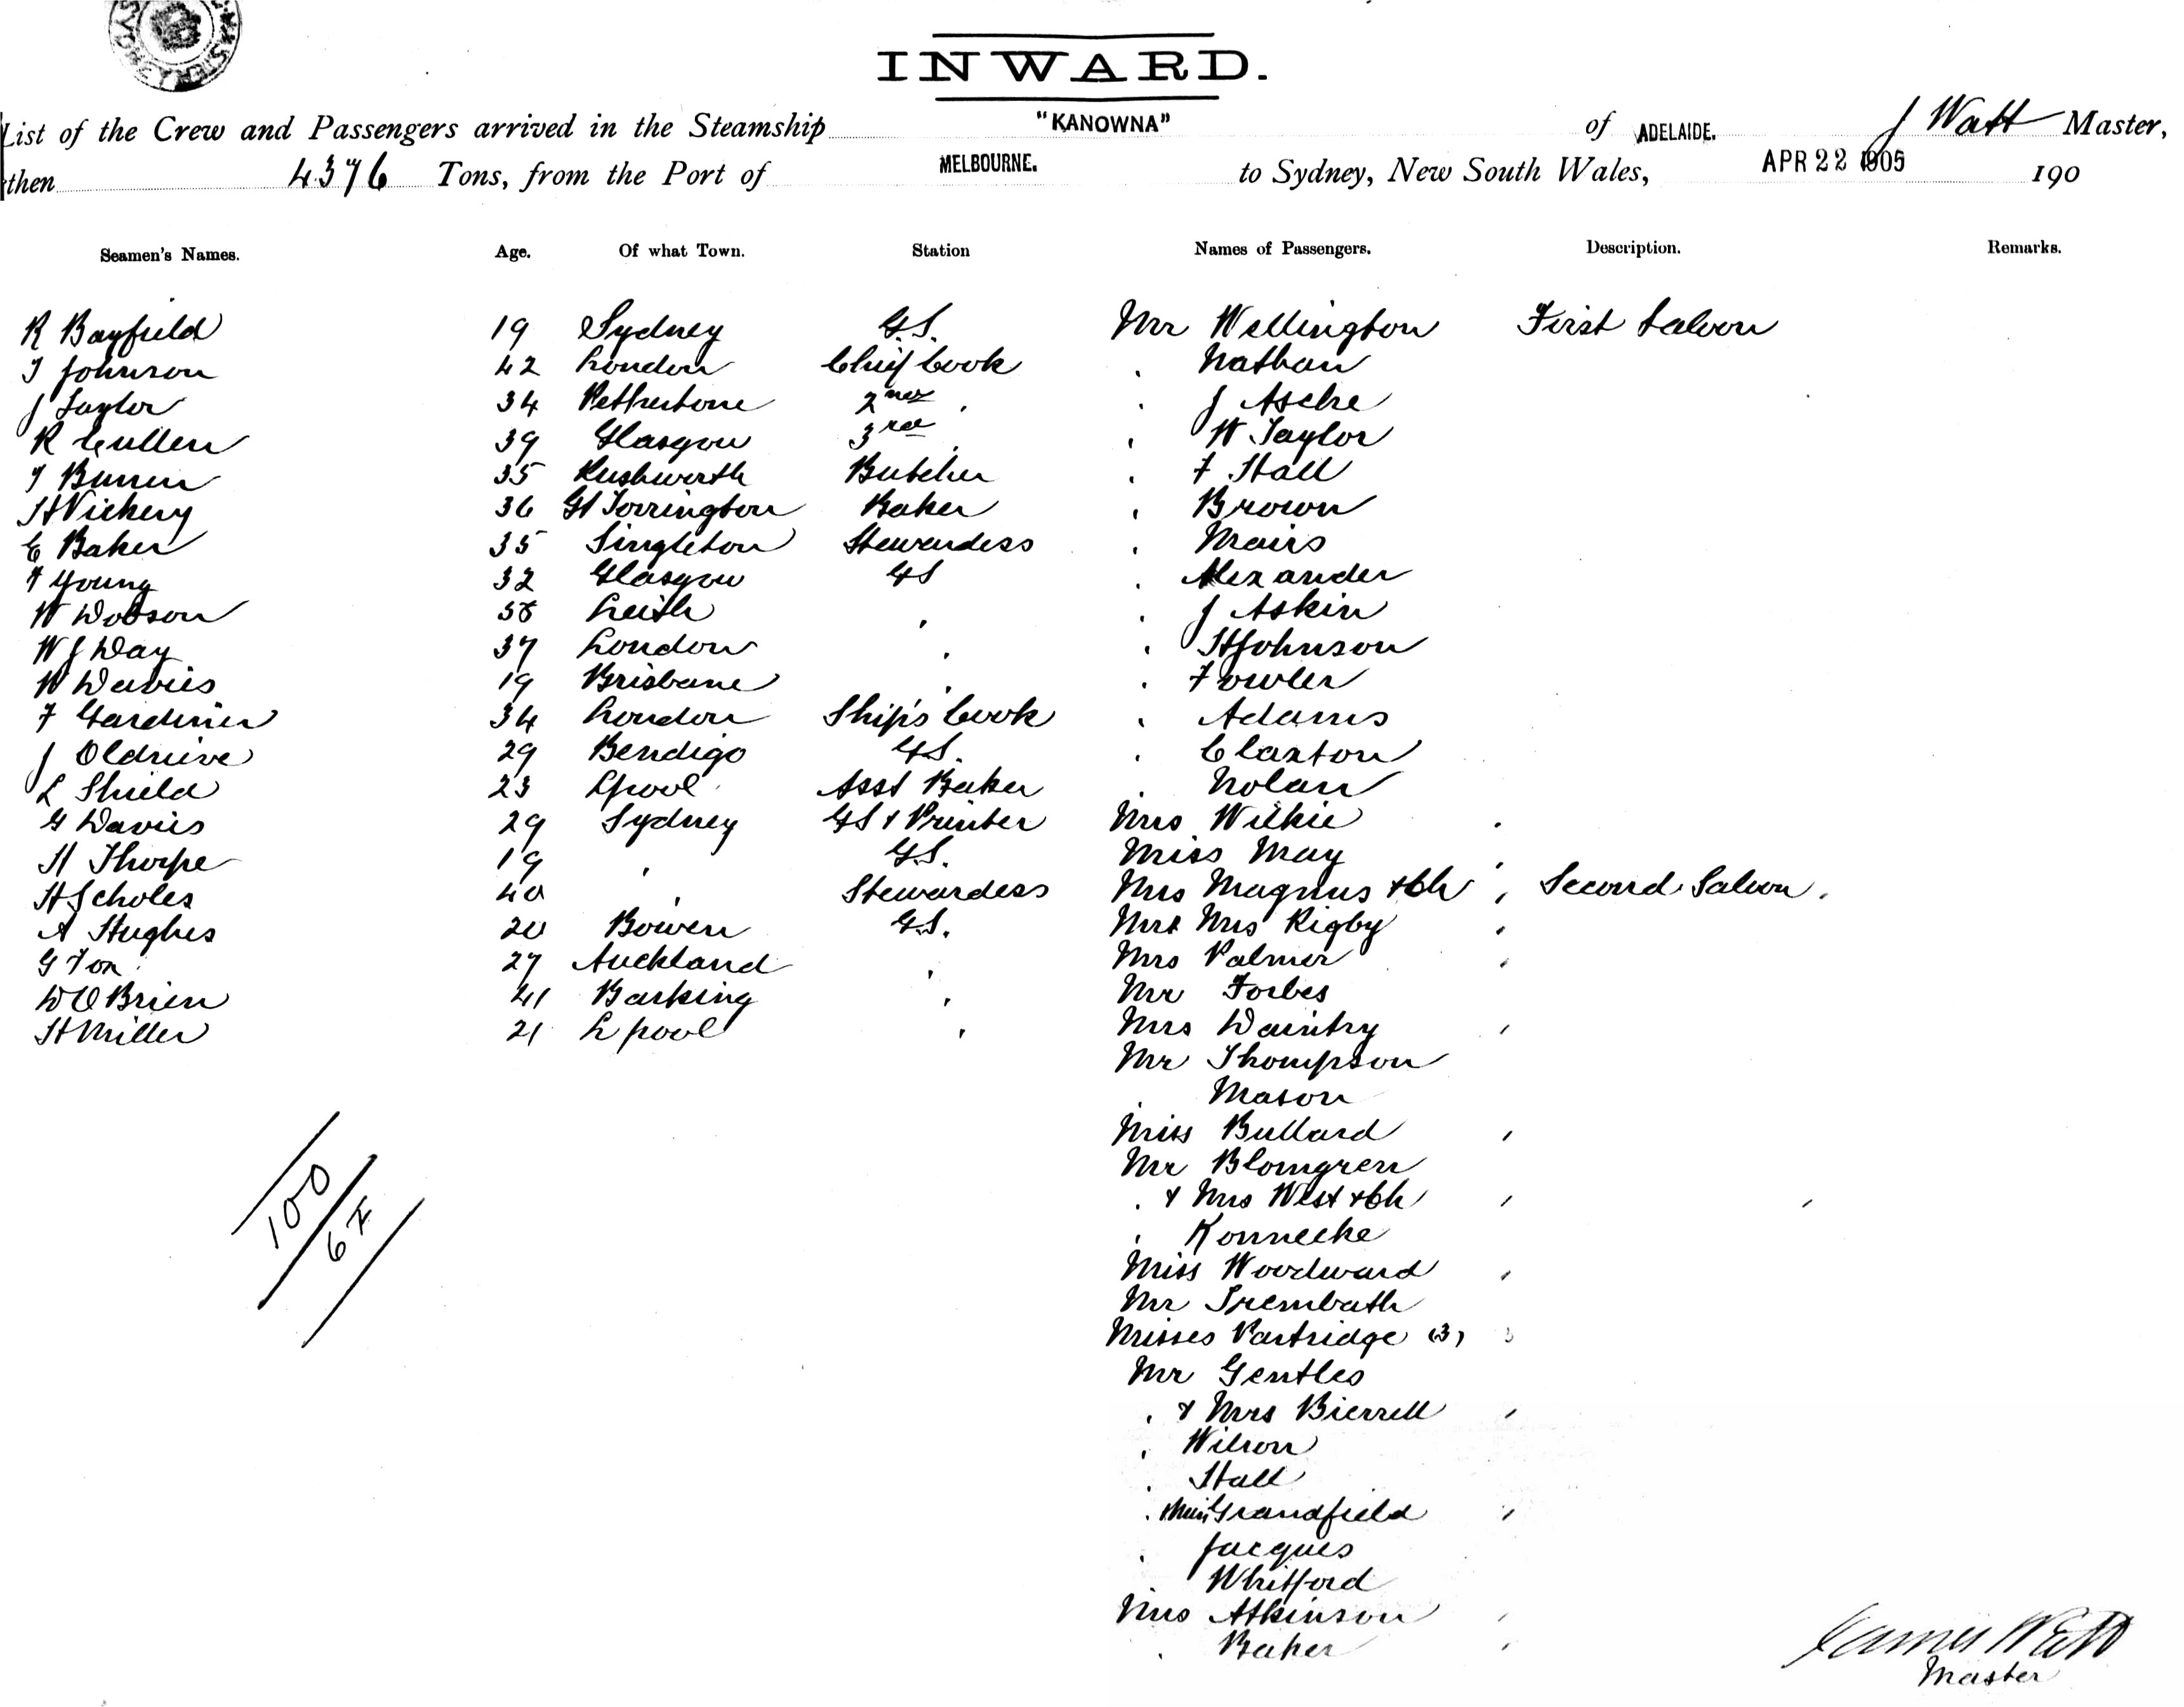 INWARD.
List of the Crew and Passengers arrived in the Steamship "KANOWNA" of ADELAIDE. J Watt Master,
then 4376 Tons, from the Port of MELBOURNE. to Sydney, New South Wales, APR 22 1905 190
Seamen's Names. Age. Of what Town. Station Names of Passengers. Description. Remarks.
R Bayfield 19 Sydney G.S. Mr Wellington First Saloon
T Johnson 42 London Chief Cook " Nathan
J Taylor 34 Petherbone 2nd " " J Asche
R Cullen 39 Glasgow 3rd " " W Taylor
T Bunn 35 Rushworth Butcher " F Hall
H Vickery 36 Gt Torrington Baker " Brown
E Baker 35 Singleton Stewardess " Mairs
F Young 32 Glasgow GS " Alexander
W Dobson 38 Leith " " J Askin
W J Day 37 London " " H Johnson
W Davies 19 Brisbane " " Fowler
F Gardiner 34 London Ship's Cook " Adams
J Oldrieve 29 Bendigo G.S. " Claxton
L Shield 23 Lpool Asst Baker " Nolan
G Davies 29 Sydney GS & Printer Mrs Wilkie "
H Thorpe 19 " G.S. Miss May "
H Scholes 40 " Stewardess Mrs Magnus & Ch " Second Saloon.
A Hughes 20 Bowen G.S. Mr & Mrs Rigby "
G Fox 27 Auckland " Mrs Palmer "
D O'Brien 41 Barking " Mr Forbes
H Miller 21 L pool " Mrs Daintry "
Mr Thompson
" Mason
Miss Bullard "
Mr Blomgren
" & Mrs West & Ch "
" Konnecke
Miss Woodward "
Mr Trembath
Misses Partridge (3) "
Mr Gentles
" & Mrs Bierrell "
" Wilson
" Hall
" Miss Grandfield "
" Jacques
Whitford
Mrs Atkinson "
" Baker "
100
64
James Watt
Master